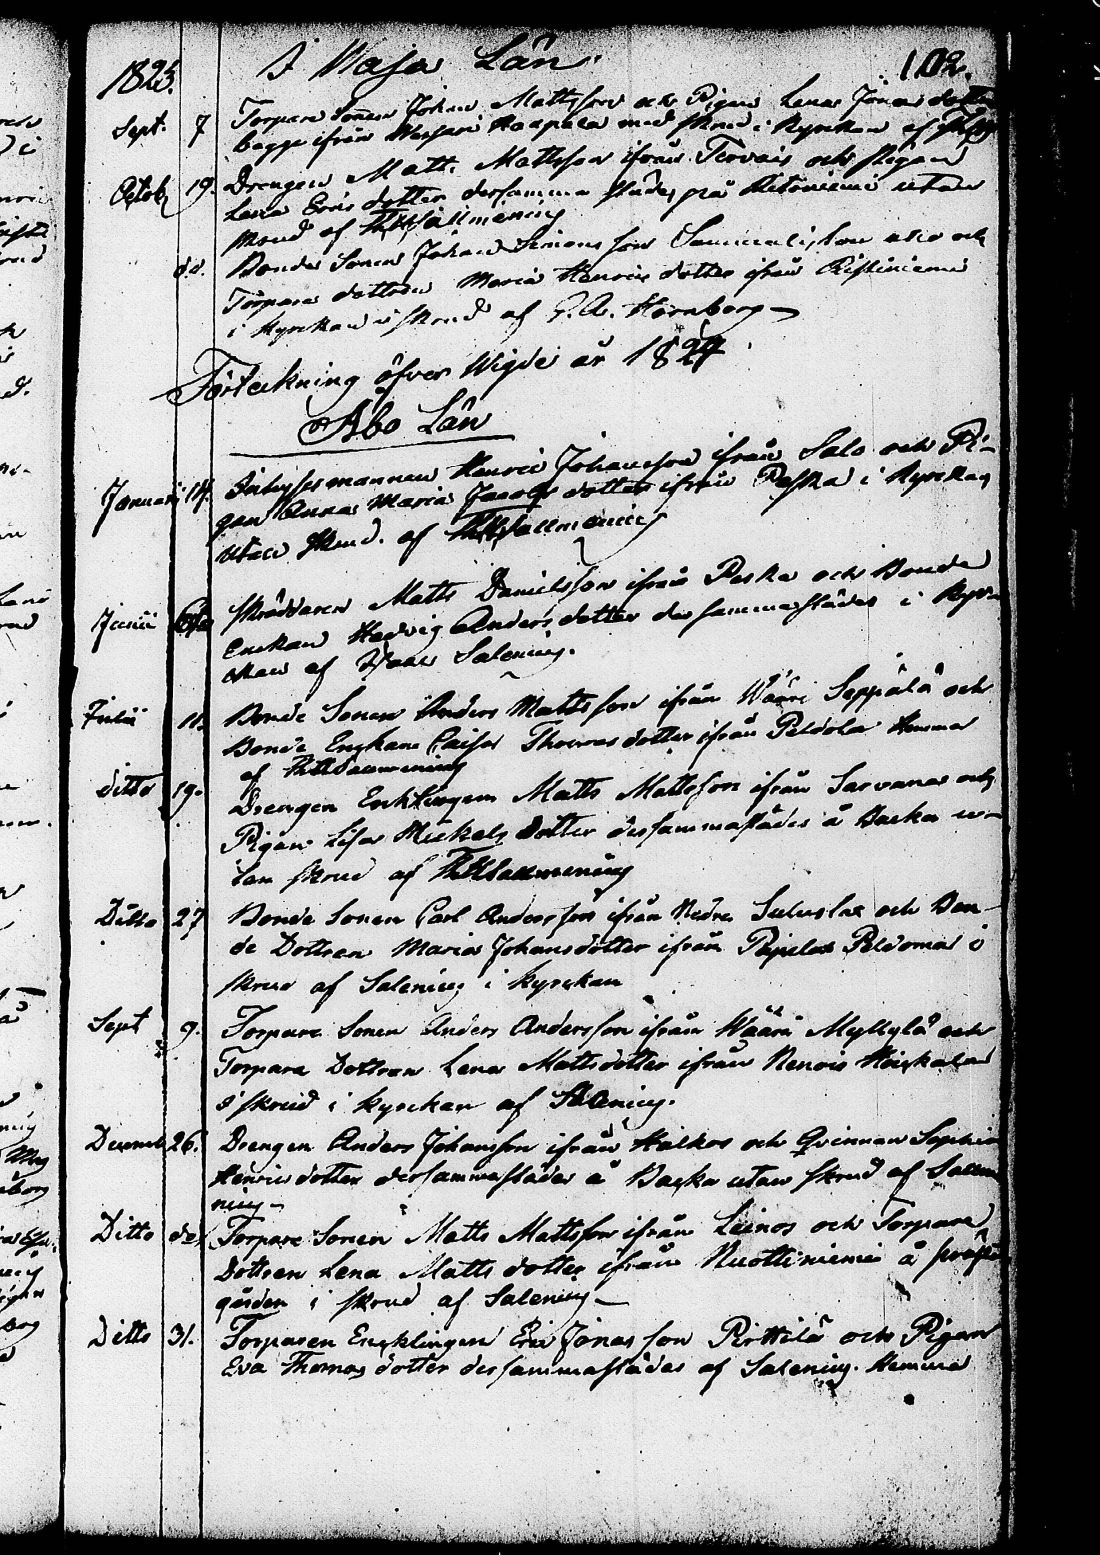 1823. I Wasa Län. 102.
Sept. 7 Torpare Sonen Johan Mattsson och Pigan Lena Jonas dotter
begge ifrån Haapala med skrud i Kyrkan af
Octob 19. Drengen Matt. Mattsson ifrån Tervais och Pigan
Lena Eris dotter dersamma städes på Ketoniemi utan
skrud af Sallmening
do. Bonde Sonen Johan Simonsson och
Torpare dottren Maria Henrics dotter ifrån Ristiniemi
i Kyrkan i skrud af G. A. Hornborg
Förteckning öfver Wigde år 1824
Åbo Län
Januari 14. Inhysesmannen Henric Johansson ifrån Salo och Pi-
gan Anna Maria Jacobs dotter ifrån Paska i Kyrkan
utan skrud. af Sallmening
Junii Skräddaren Matts Danielsson ifrån Paska och Bonde
Enckan Hedvig Anders dotter dersammastädes i Kyr-
kan af Salening.
Julii 11. Bonde Sonen Anders Mattsson ifrån Wääri Seppälä och
Bonde Enckan Caisa Thomas dotter ifrån Peldola Hemma
af Sallmening
ditto 19. Drengen Enklingen Matts Mattsson ifrån Sarvana och
Pigan Lisa Michels dotter dersammastädes å Backa u-
tan skrud af Sallmening
Ditto 27 Bonde Sonen Carl Andersson ifrån Nedre och Bon-
de Dottren Maria Johansdotter ifrån Peldoma i
skrud af Salening i Kyrckan
Sept 9. Torpare Sonen Anders Andersson ifrån Wääri Myllylä och
Torpare Dottren Lena Mattsdotter ifrån
i skrud i Kyrckan af Salening.
Decemb 26. Drengen Anders Johansson ifrån Halkos och Qvinnan Sophia
Henrics dotter dersammastädes å Backa utan skrud af Sallme
ning
Ditto do. Torpare Sonen Matts Mattsson ifrån Leinos och Torpare
Dottren Lena Matts dotter ifrån Nuottiniemi å prest
gården i skrud af Salening
Ditto 31. Torparen Encklingen Eric Jonasson Pirttilä och Pigan
Eva Thomas dotter dersammastädes af Salening. Hemma